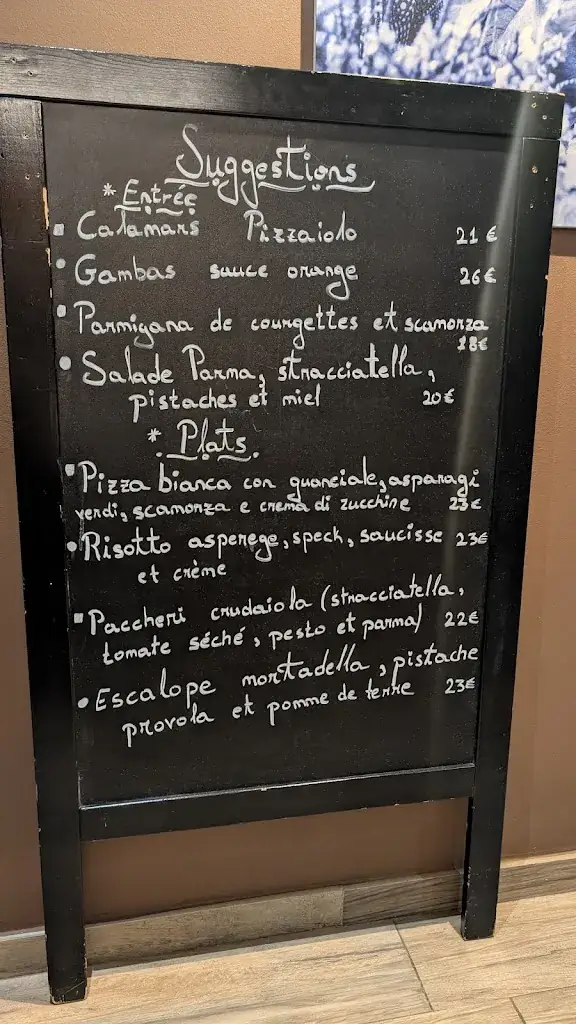 Suggestions
* Entrée
Calamars Pizzaiolo 21 €
Gambas sauce orange 26 €
Parmigana de courgettes et scamorza
18€
Salade Parma, stracciatella,
pistaches et miel 20 €
* Plats
Pizza bianca con guanciale, asparagi
verdi, scamorza e crema di zucchine 23 €
Risotto asperege, speck, saucisse 23€
et crème
Paccheri crudaiola (stracciatella,
tomate séché, pesto et parma) 22€
Escalope mortadella, pistache
provola et pomme de terre 23€